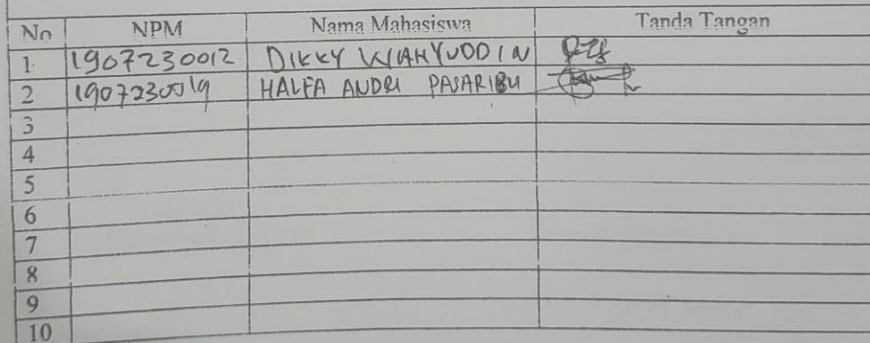 No NPM Nama Mahasiswa Tanda Tangan
1. 1907230012 DIKKY WAHYUDDIN
2 1907230019 HALFA ANDRI PASARIBU
3
4
5
6
7
8
9
10